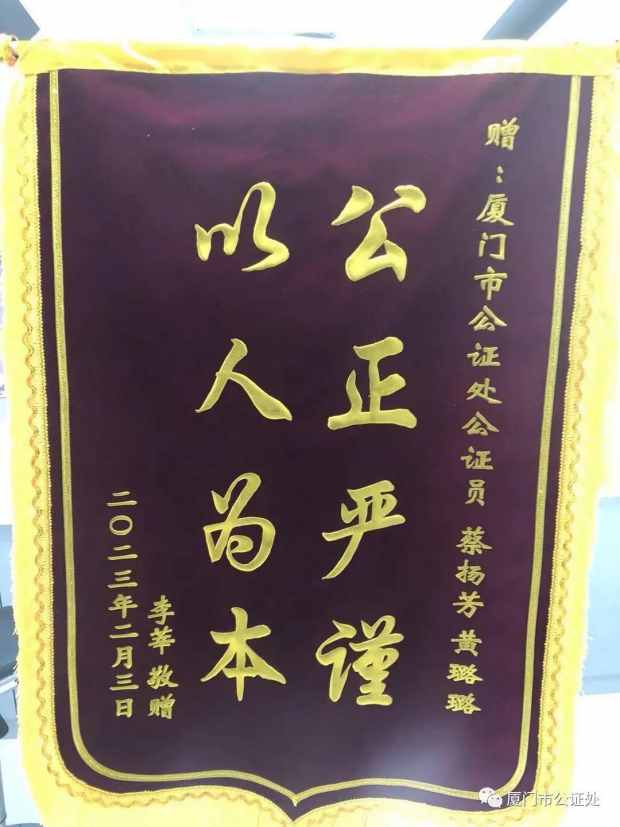 赠：厦门市公证处公证员 蔡扬芳 黄璐璐
公正严谨
以人为本
李莘敬赠
二〇二三年二月三日
厦门市公证处